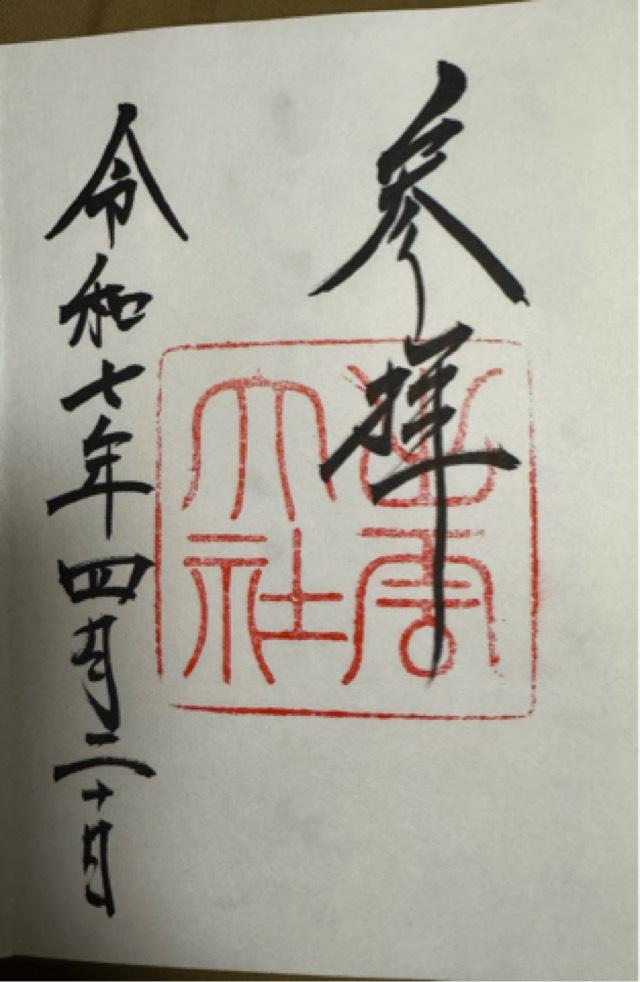 参拝
出雲大社
令和七年四月二十日